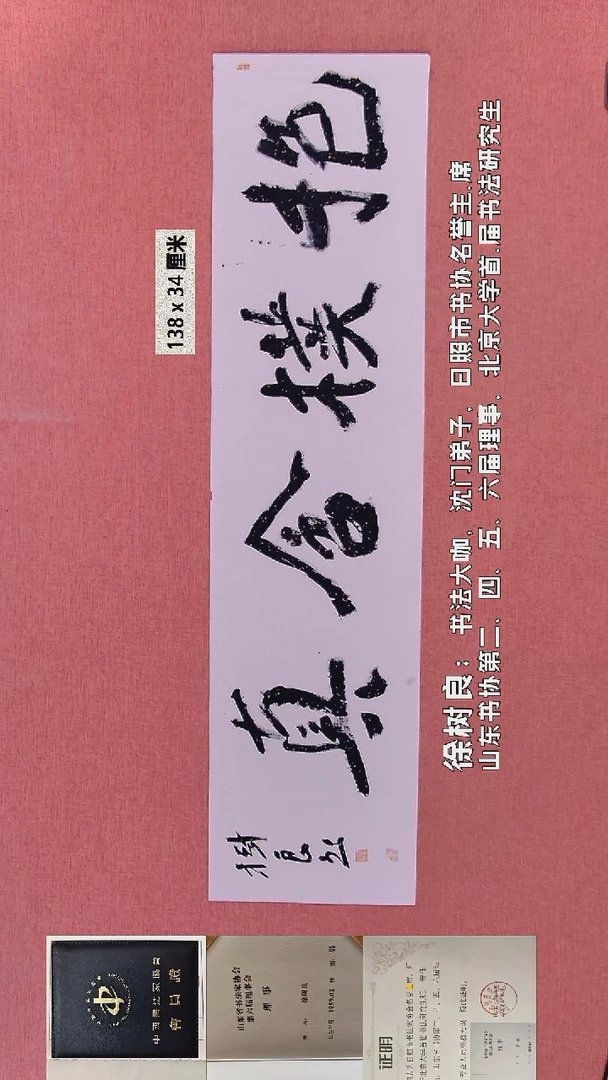 138 x 34 厘米
抱樸含真
樹良
徐树良：书法大咖，沈门弟子，日照市书协名誉主.席
山东书协第二、四、五、六届理事，北京大学首.届书法研究生
中國書法家協會
會員證
山东省书法家协会
第六届理事会
理事
证明